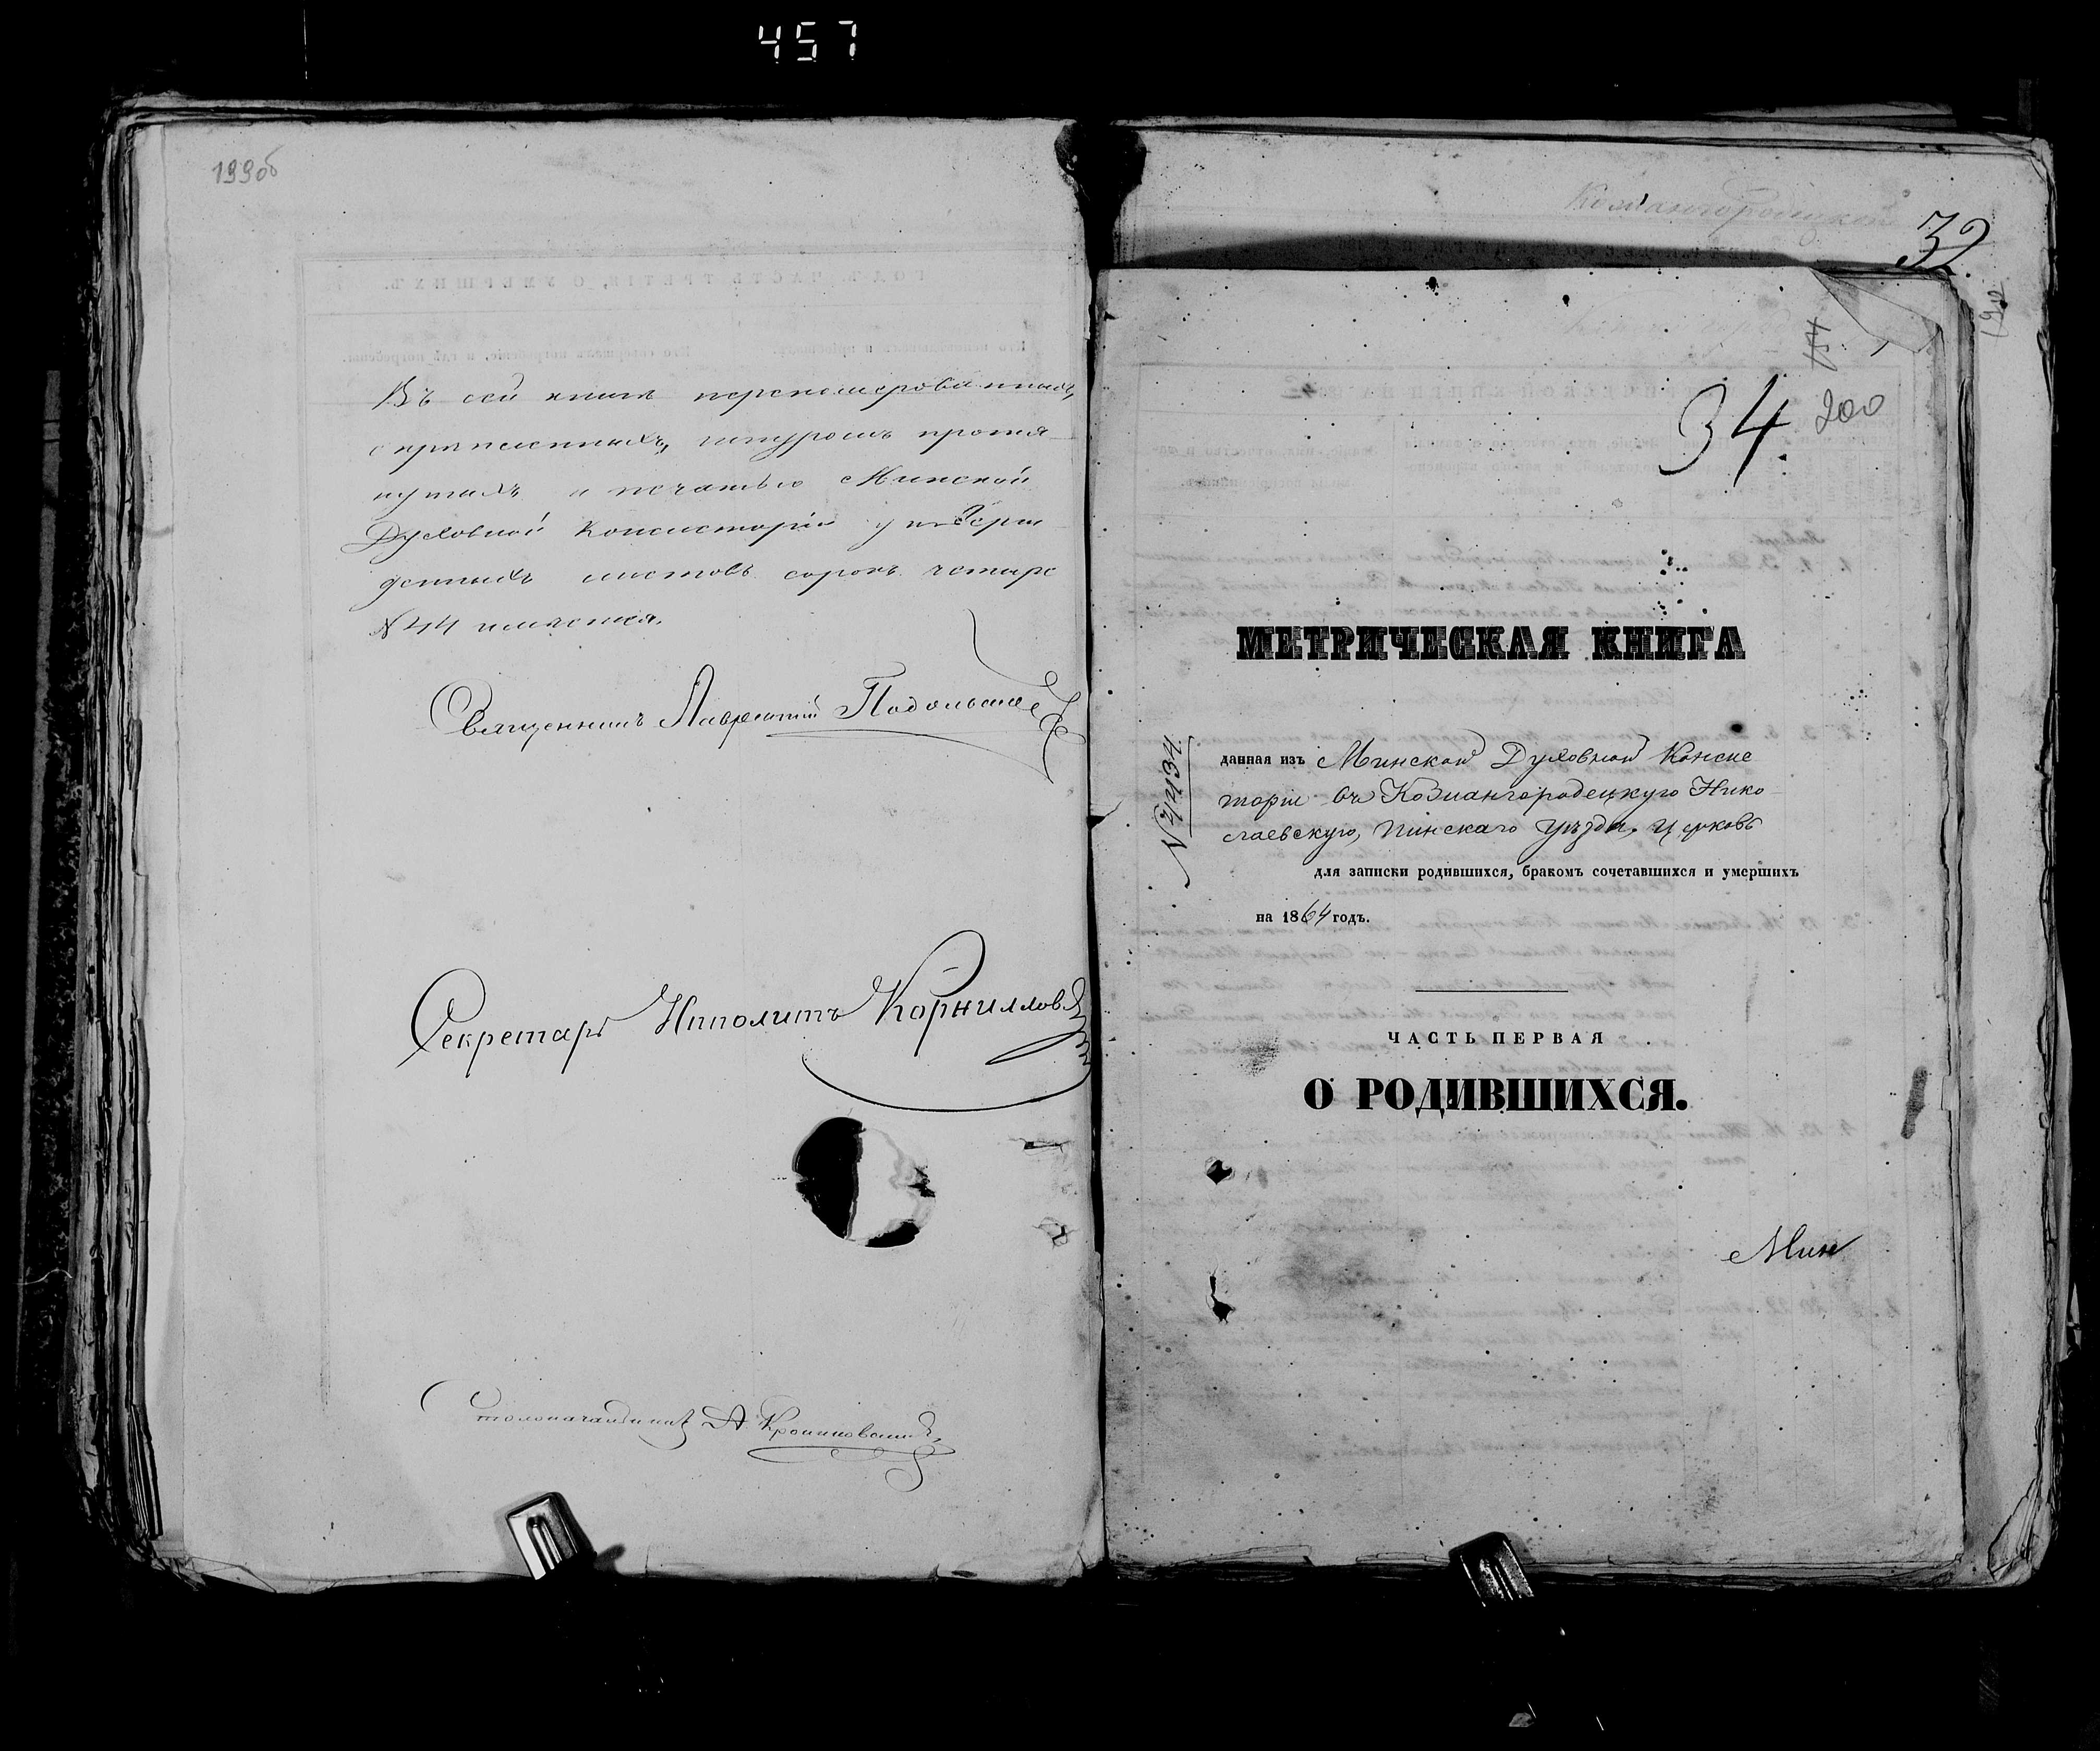 457
199об
Въ сей книге перенумерованныхъ,
скрѣпленныхъ, шнуромъ протя
нутыхъ и печатью Минской
Духовной Консисторіи утверж
денныхъ листовъ сорокъ четыре
№ 44 имѣется.
Священникъ Лаврентій
Секретарь Ипполитъ Корниловъ
Столоначальникъ А.
32.
192
154
34.
200
МЕТРИЧЕСКАЯ КНИГА
данная изъ Минской Духовной Консис
торіи въ Кожангородецкую Нико
лаевскую, Пинскаго Уѣзда, церковь
для записки родившихся, бракомъ сочетавшихся и умершихъ
на 1864 годъ.
ЧАСТЬ ПЕРВАЯ
О РОДИВШИХСЯ.
Мин